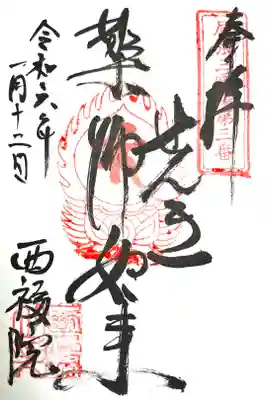 奉拝
せんき
薬師如来
西福院
令和六年
一月十二日